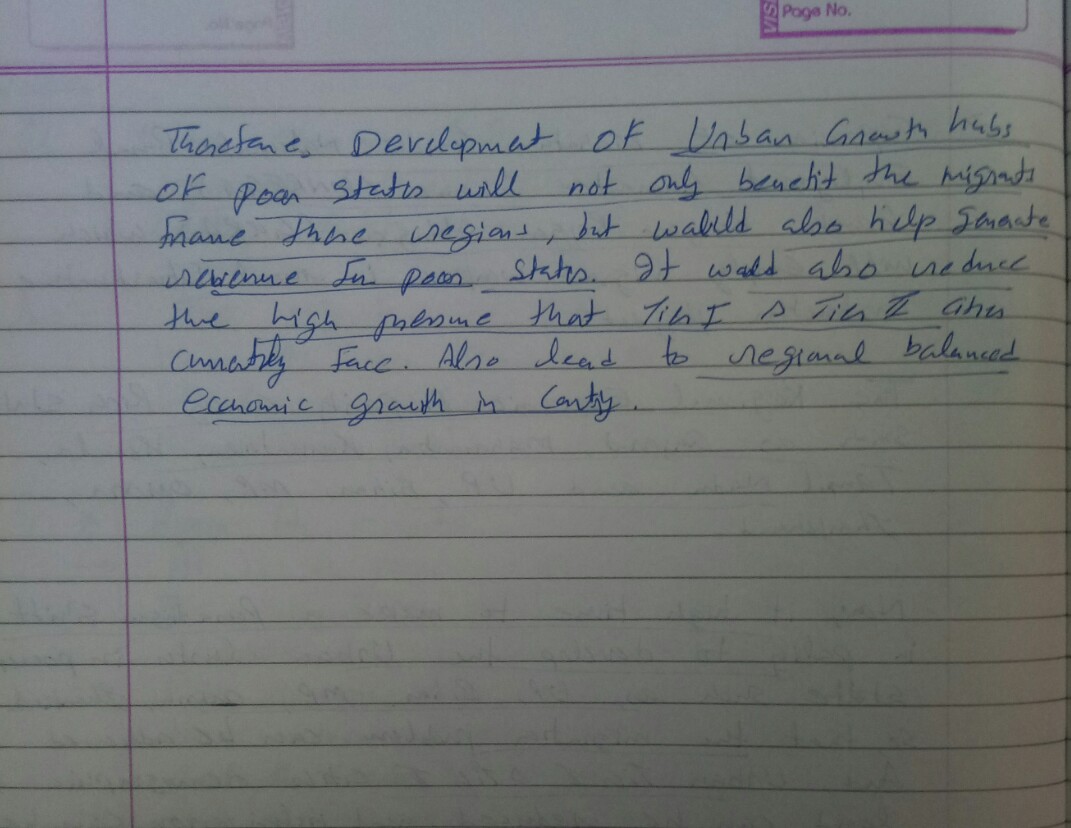 VIS
Page No.
Therefore, Development of Urban Growth hubs
of poor states will not only benefit the migrants
frome these regions, but would also help generate
revenue for poor states. It would also reduce
the high pressure that Tier I & Tier II cities
currently face. Also lead to regional balanced
economic growth in Country.